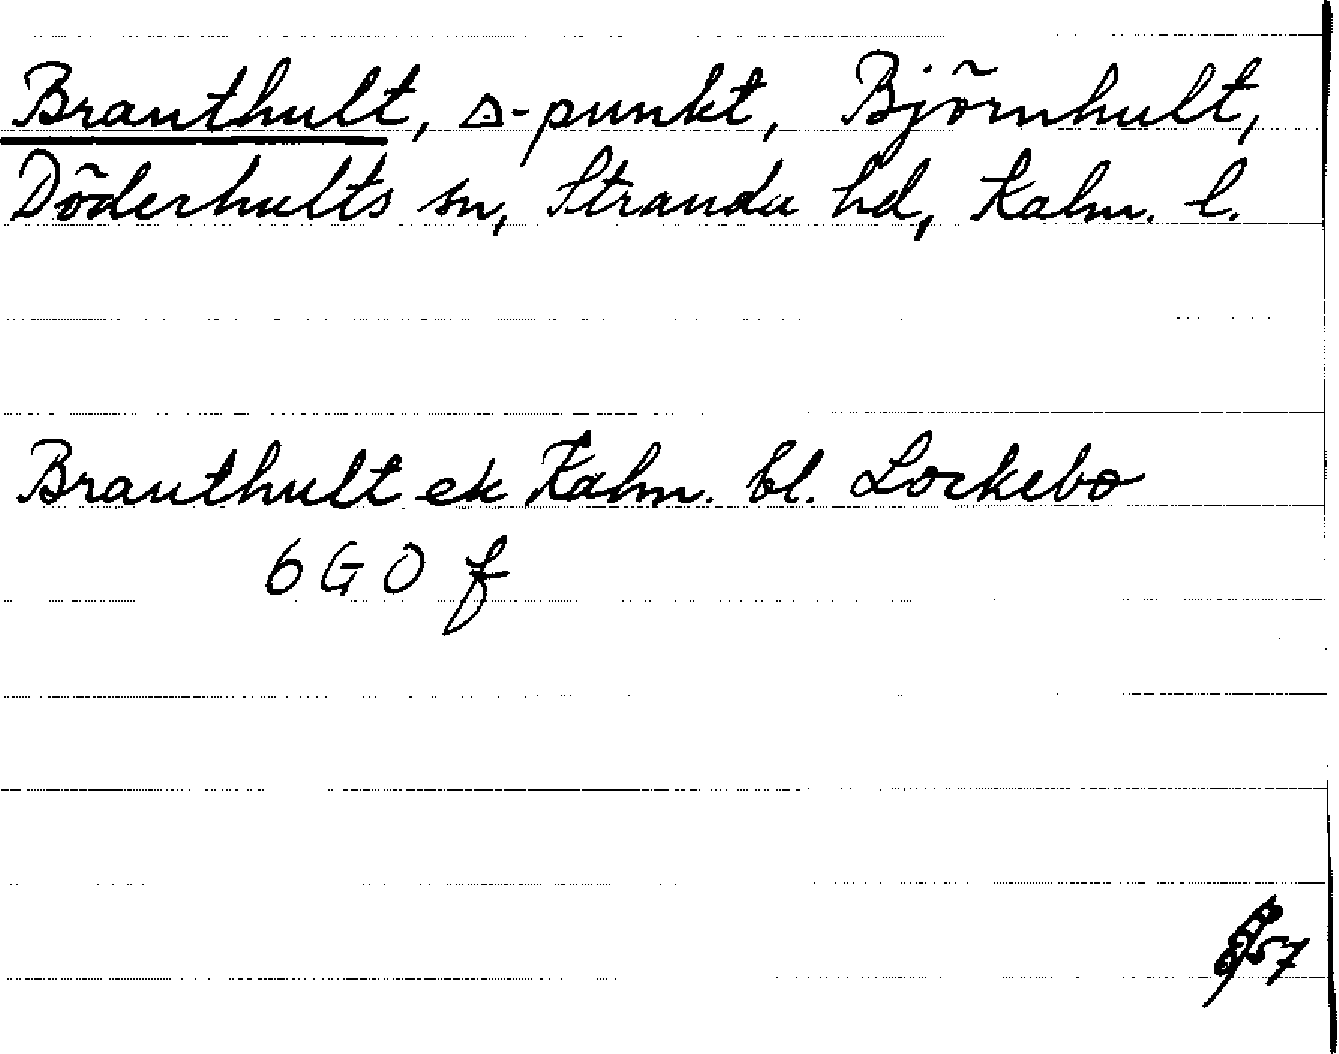 Branthult, △-punkt, Björnhult,
Döderhults sn, Stranda hd, Kalm. l.
Branthult ek Kalm. bl. Lockebo
6 G O f
57